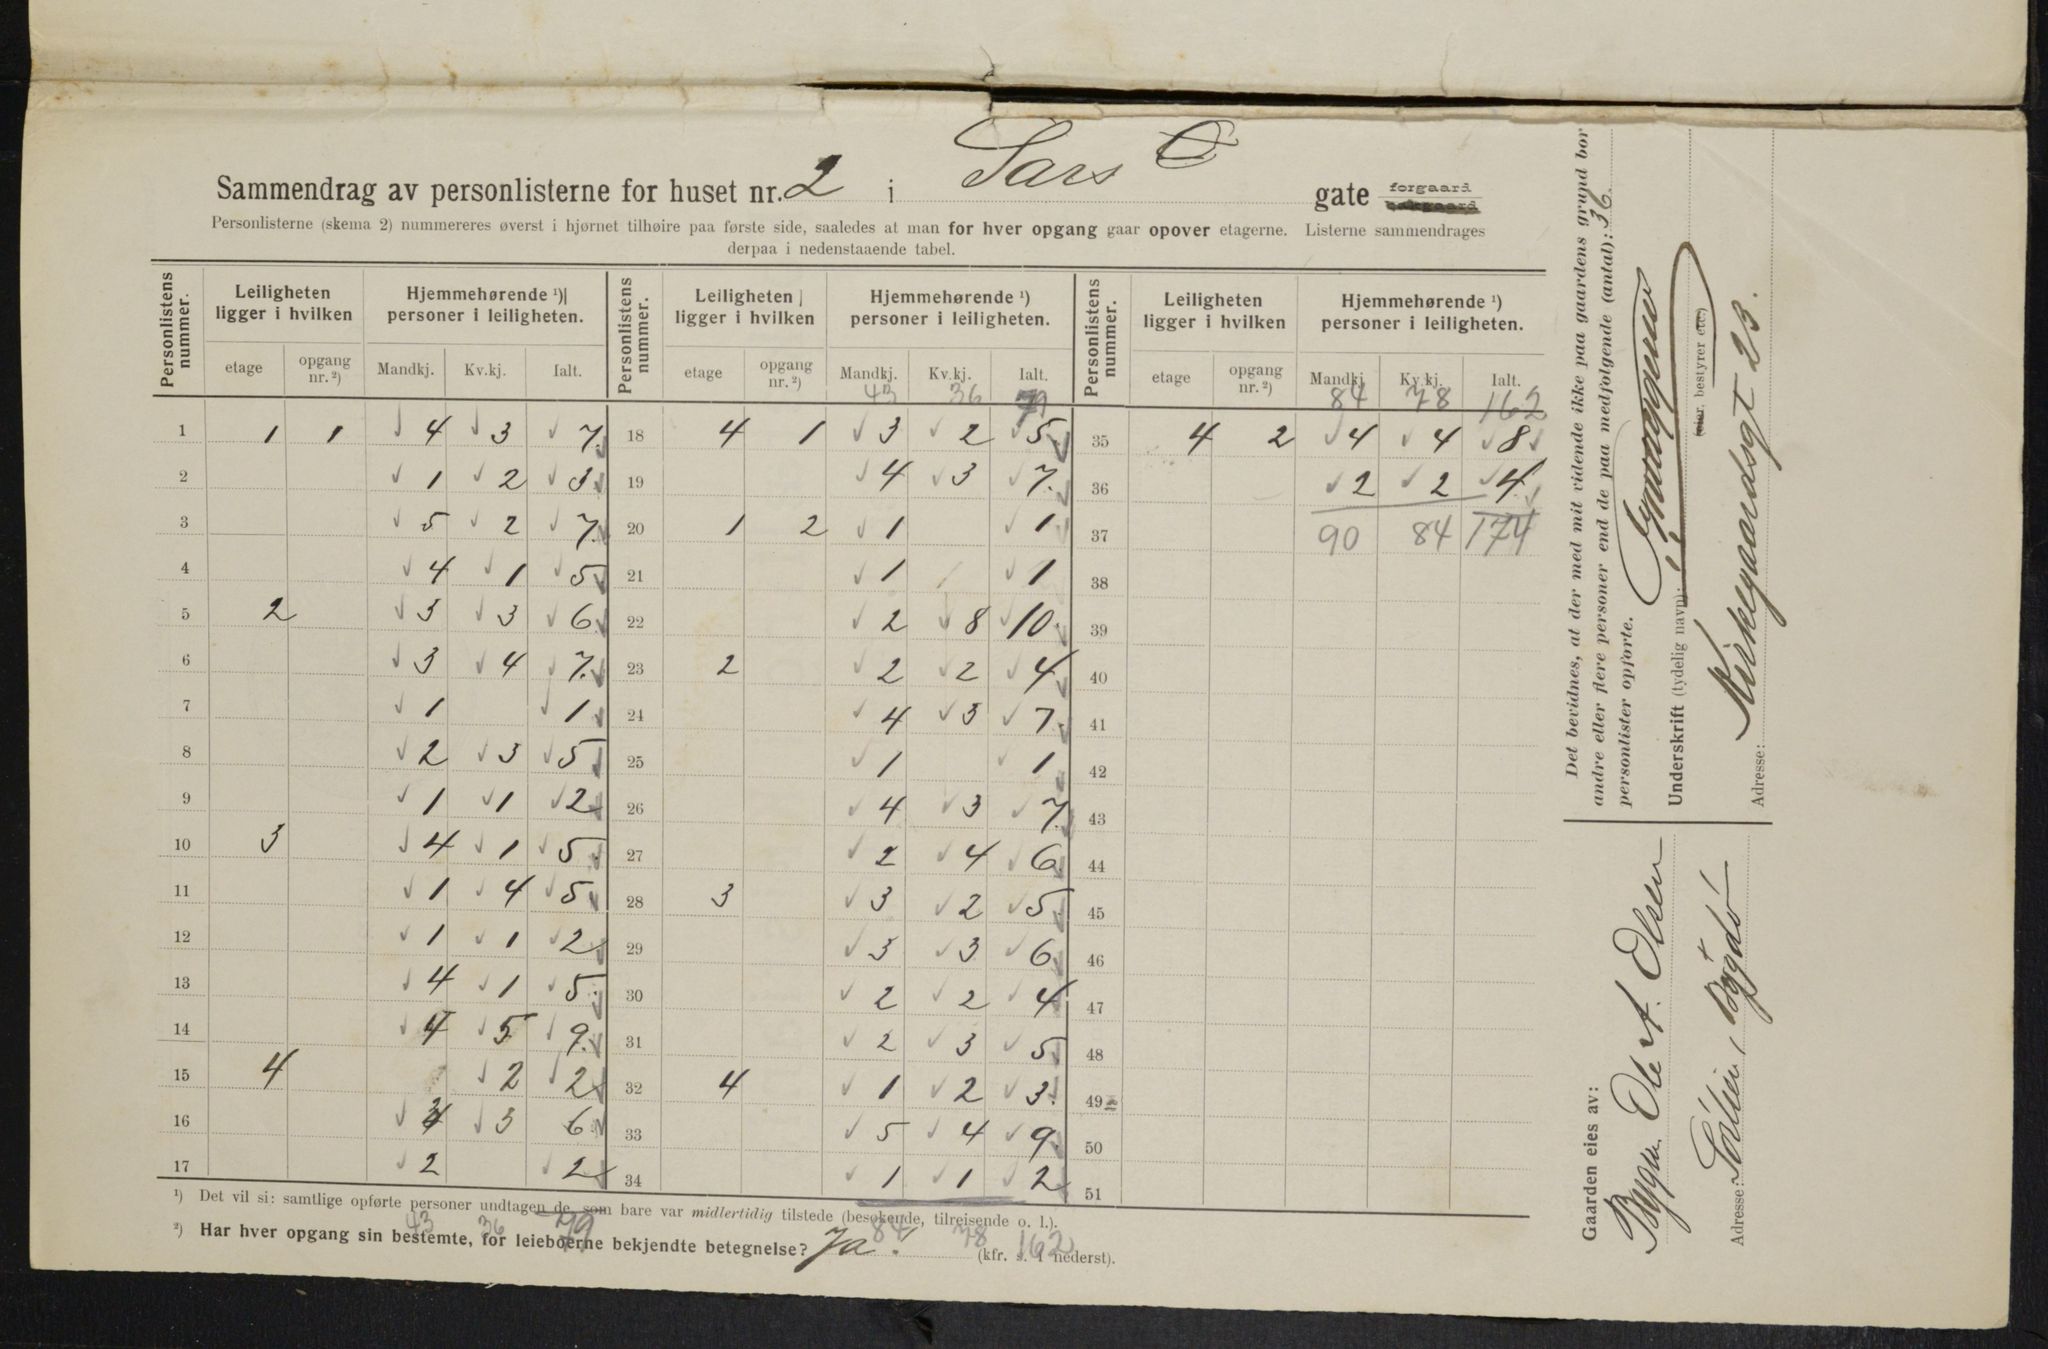 Sammendrag av personlisterne for huset nr. 2 i Sars gate forgaard
Personlisterne (skema 2) nummereres øverst i hjørnet tilhøire paa første side, saaledes at man for hver opgang gaar opover etagerne. Listerne sammendrages
derpaa i nedenstaaende tabel.
Personlistens nummer. Leiligheten ligger i hvilken Hjemmehørende ¹) personer i leiligheten. Personlistens nummer. Leiligheten ligger i hvilken Hjemmehørende ¹) personer i leiligheten. Personlistens nummer. Leiligheten ligger i hvilken Hjemmehørende ¹) personer i leiligheten.
etage opgang nr. ²) Mandkj. Kv.kj. Ialt. etage opgang nr. ²) Mandkj. Kv.kj. Ialt. etage opgang nr. ²) Mandkj. Kv.kj. Ialt.
43 36 79 84 78 162
1 1 1 4 3 7. 18 4 1 3 2 5. 35 4 2 4 4 8
2 1 2 3. 19 4 3 7. 36 2 2 4.
3 5 2 7. 20 1 2 1 1 37 90 84 174
4 4 1 5. 21 1 1 38
5 2 3 3 6. 22 2 8 10. 39
6 3 4 7. 23 2 2 2 4 40
7 1 1 24 4 3 7. 41
8 2 3 5 25 1 1 42
9 1 1 2 26 4 3 7. 43
10 3 4 1 5. 27 2 4 6. 44
11 1 4 5. 28 3 3 2 5. 45
12 1 1 2 29 3 3 6. 46
13 4 1 5. 30 2 2 4 47
14 4 5 9. 31 2 3 5. 48
15 4 2 2 32 4 1 2 3. 49
16 3 3 6. 33 5 4 9. 50
17 2 2 34 1 1 2 51
¹) Det vil si: samtlige opførte personer undtagen de, som bare var midlertidig tilstede (besøkende, tilreisende o. l.).
43 36 79 84 78 162
²) Har hver opgang sin bestemte, for leieboerne bekjendte betegnelse? Ja! (kfr. s. 1 nederst).
Det bevidnes, at der med mit vidende ikke paa gaardens grund bor
andre eller flere personer end de paa medfølgende (antal): 36.
personlister opførte.
Underskrift (tydelig navn): (eier, bestyrer etc.)
Adresse: Kirkegaardsgt 23.
Gaarden eies av:
Bygm. Ole A. Olsen
Adresse: Solli, Bygdø